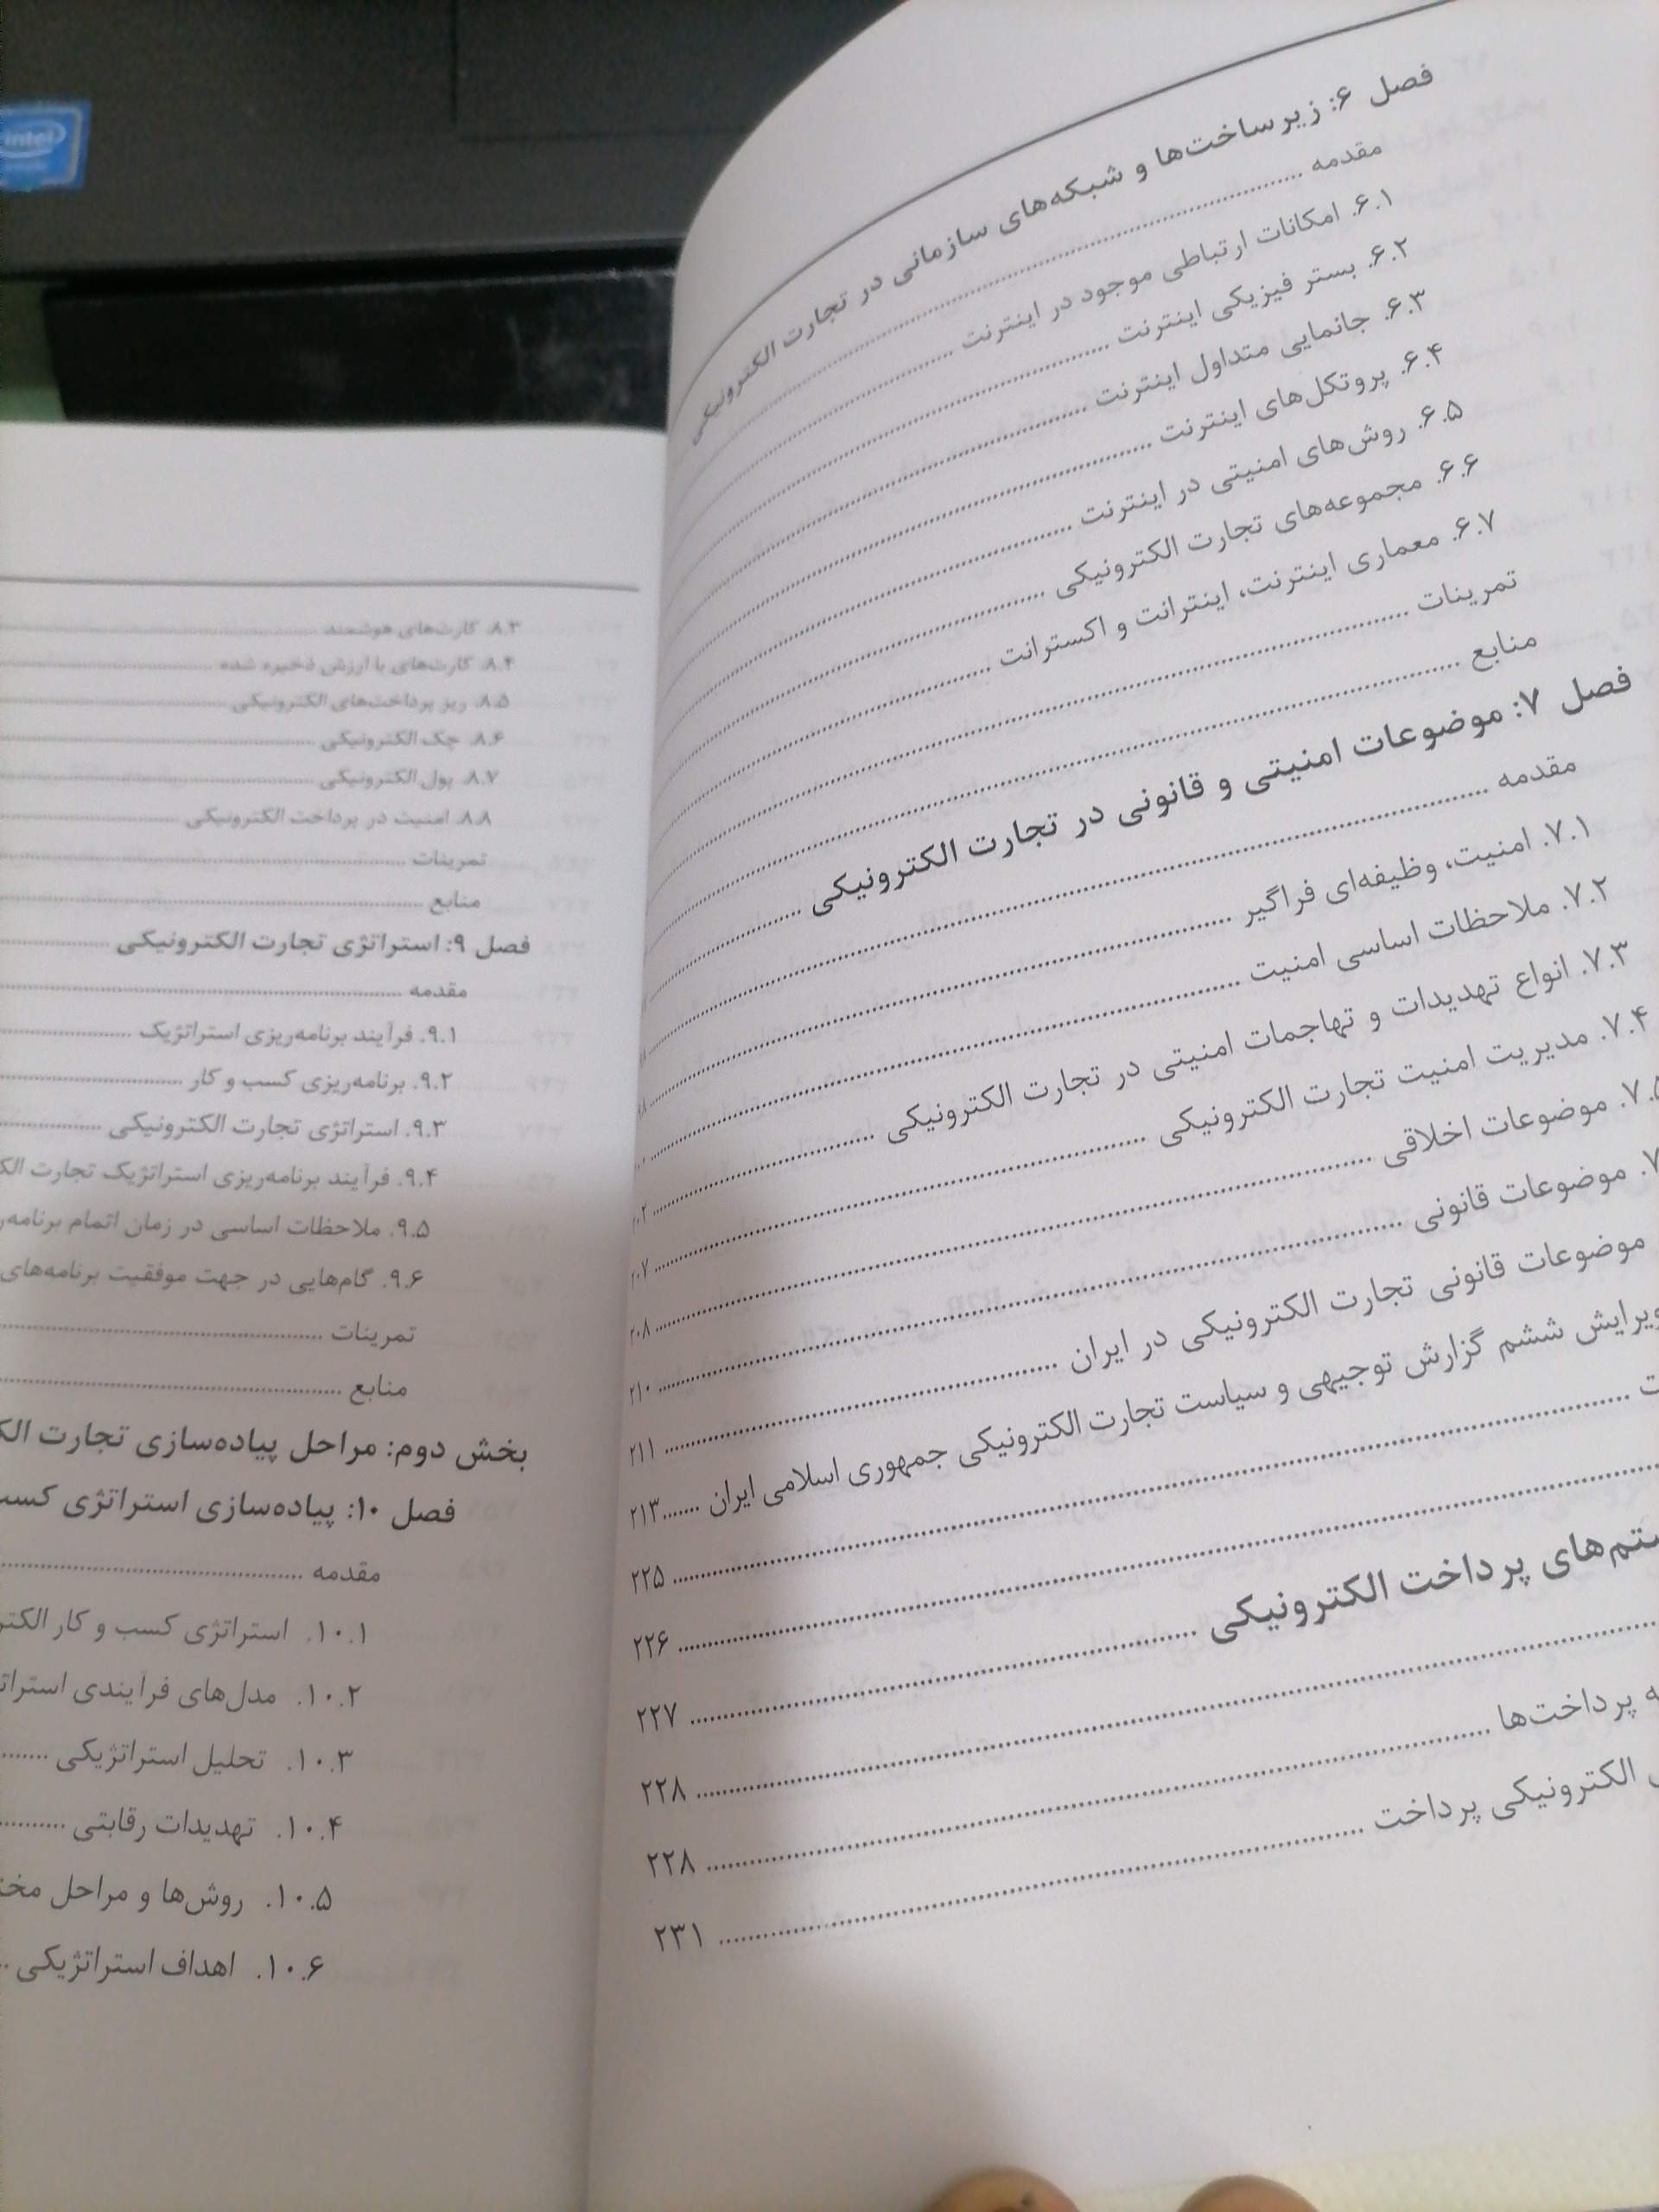 intel
فصل ۶: زیرساخت‌ها و شبکه‌های سازمانی در تجارت الکترونیکی
مقدمه
۶.۱. امکانات ارتباطی موجود در اینترنت
۶.۲. بستر فیزیکی اینترنت
۶.۳. جانمایی متداول اینترنت
۶.۴. پروتکل‌های اینترنت
۶.۵. روش‌های امنیتی در اینترنت
۶.۶. مجموعه‌های تجارت الکترونیکی
۶.۷. معماری اینترنت، اینترانت و اکسترانت
تمرینات
منابع
فصل ۷: موضوعات امنیتی و قانونی در تجارت الکترونیکی
مقدمه
۷.۱. امنیت، وظیفه‌ای فراگیر
۷.۲. ملاحظات اساسی امنیت
۷.۳. انواع تهدیدات و تهاجمات امنیتی در تجارت الکترونیکی ۲۰۲
۷.۴. مدیریت امنیت تجارت الکترونیکی ۲۰۷
۷.۵. موضوعات اخلاقی ۲۰۸
موضوعات قانونی ۲۱۰
موضوعات قانونی تجارت الکترونیکی در ایران ۲۱۱
ویرایش ششم گزارش توجیهی و سیاست تجارت الکترونیکی جمهوری اسلامی ایران ۲۱۳
۲۲۵
۲۲۶
پرداخت الکترونیکی ۲۲۷
۲۲۸
پرداخت‌ها ۲۲۸
الکترونیکی پرداخت ۲۳۱
۸.۳. کارت‌های هوشمند
۸.۴. کارت‌های با ارزش ذخیره شده
۸.۵. ریز پرداخت‌های الکترونیکی
۸.۶. چک الکترونیکی
۸.۷. پول الکترونیکی
۸.۸. امنیت در پرداخت الکترونیکی
تمرینات
منابع
فصل ۹: استراتژی تجارت الکترونیکی
مقدمه
۹.۱. فرآیند برنامه‌ریزی استراتژیک
۹.۲. برنامه‌ریزی کسب و کار
۹.۳. استراتژی تجارت الکترونیکی
۹.۴. فرآیند برنامه‌ریزی استراتژیک تجارت
۹.۵. ملاحظات اساسی در زمان اتمام
۹.۶. گام‌هایی در جهت موفقیت برنامه‌های
تمرینات
منابع
بخش دوم: مراحل پیاده‌سازی تجارت
فصل ۱۰: پیاده‌سازی استراتژی
مقدمه
۱۰.۱. استراتژی کسب و کار
۱۰.۲. مدل‌های فرآیندی
۱۰.۳. تحلیل استراتژیکی
۱۰.۴. تهدیدات رقابتی
۱۰.۵. روش‌ها و مراحل
۱۰.۶. اهداف استراتژیکی